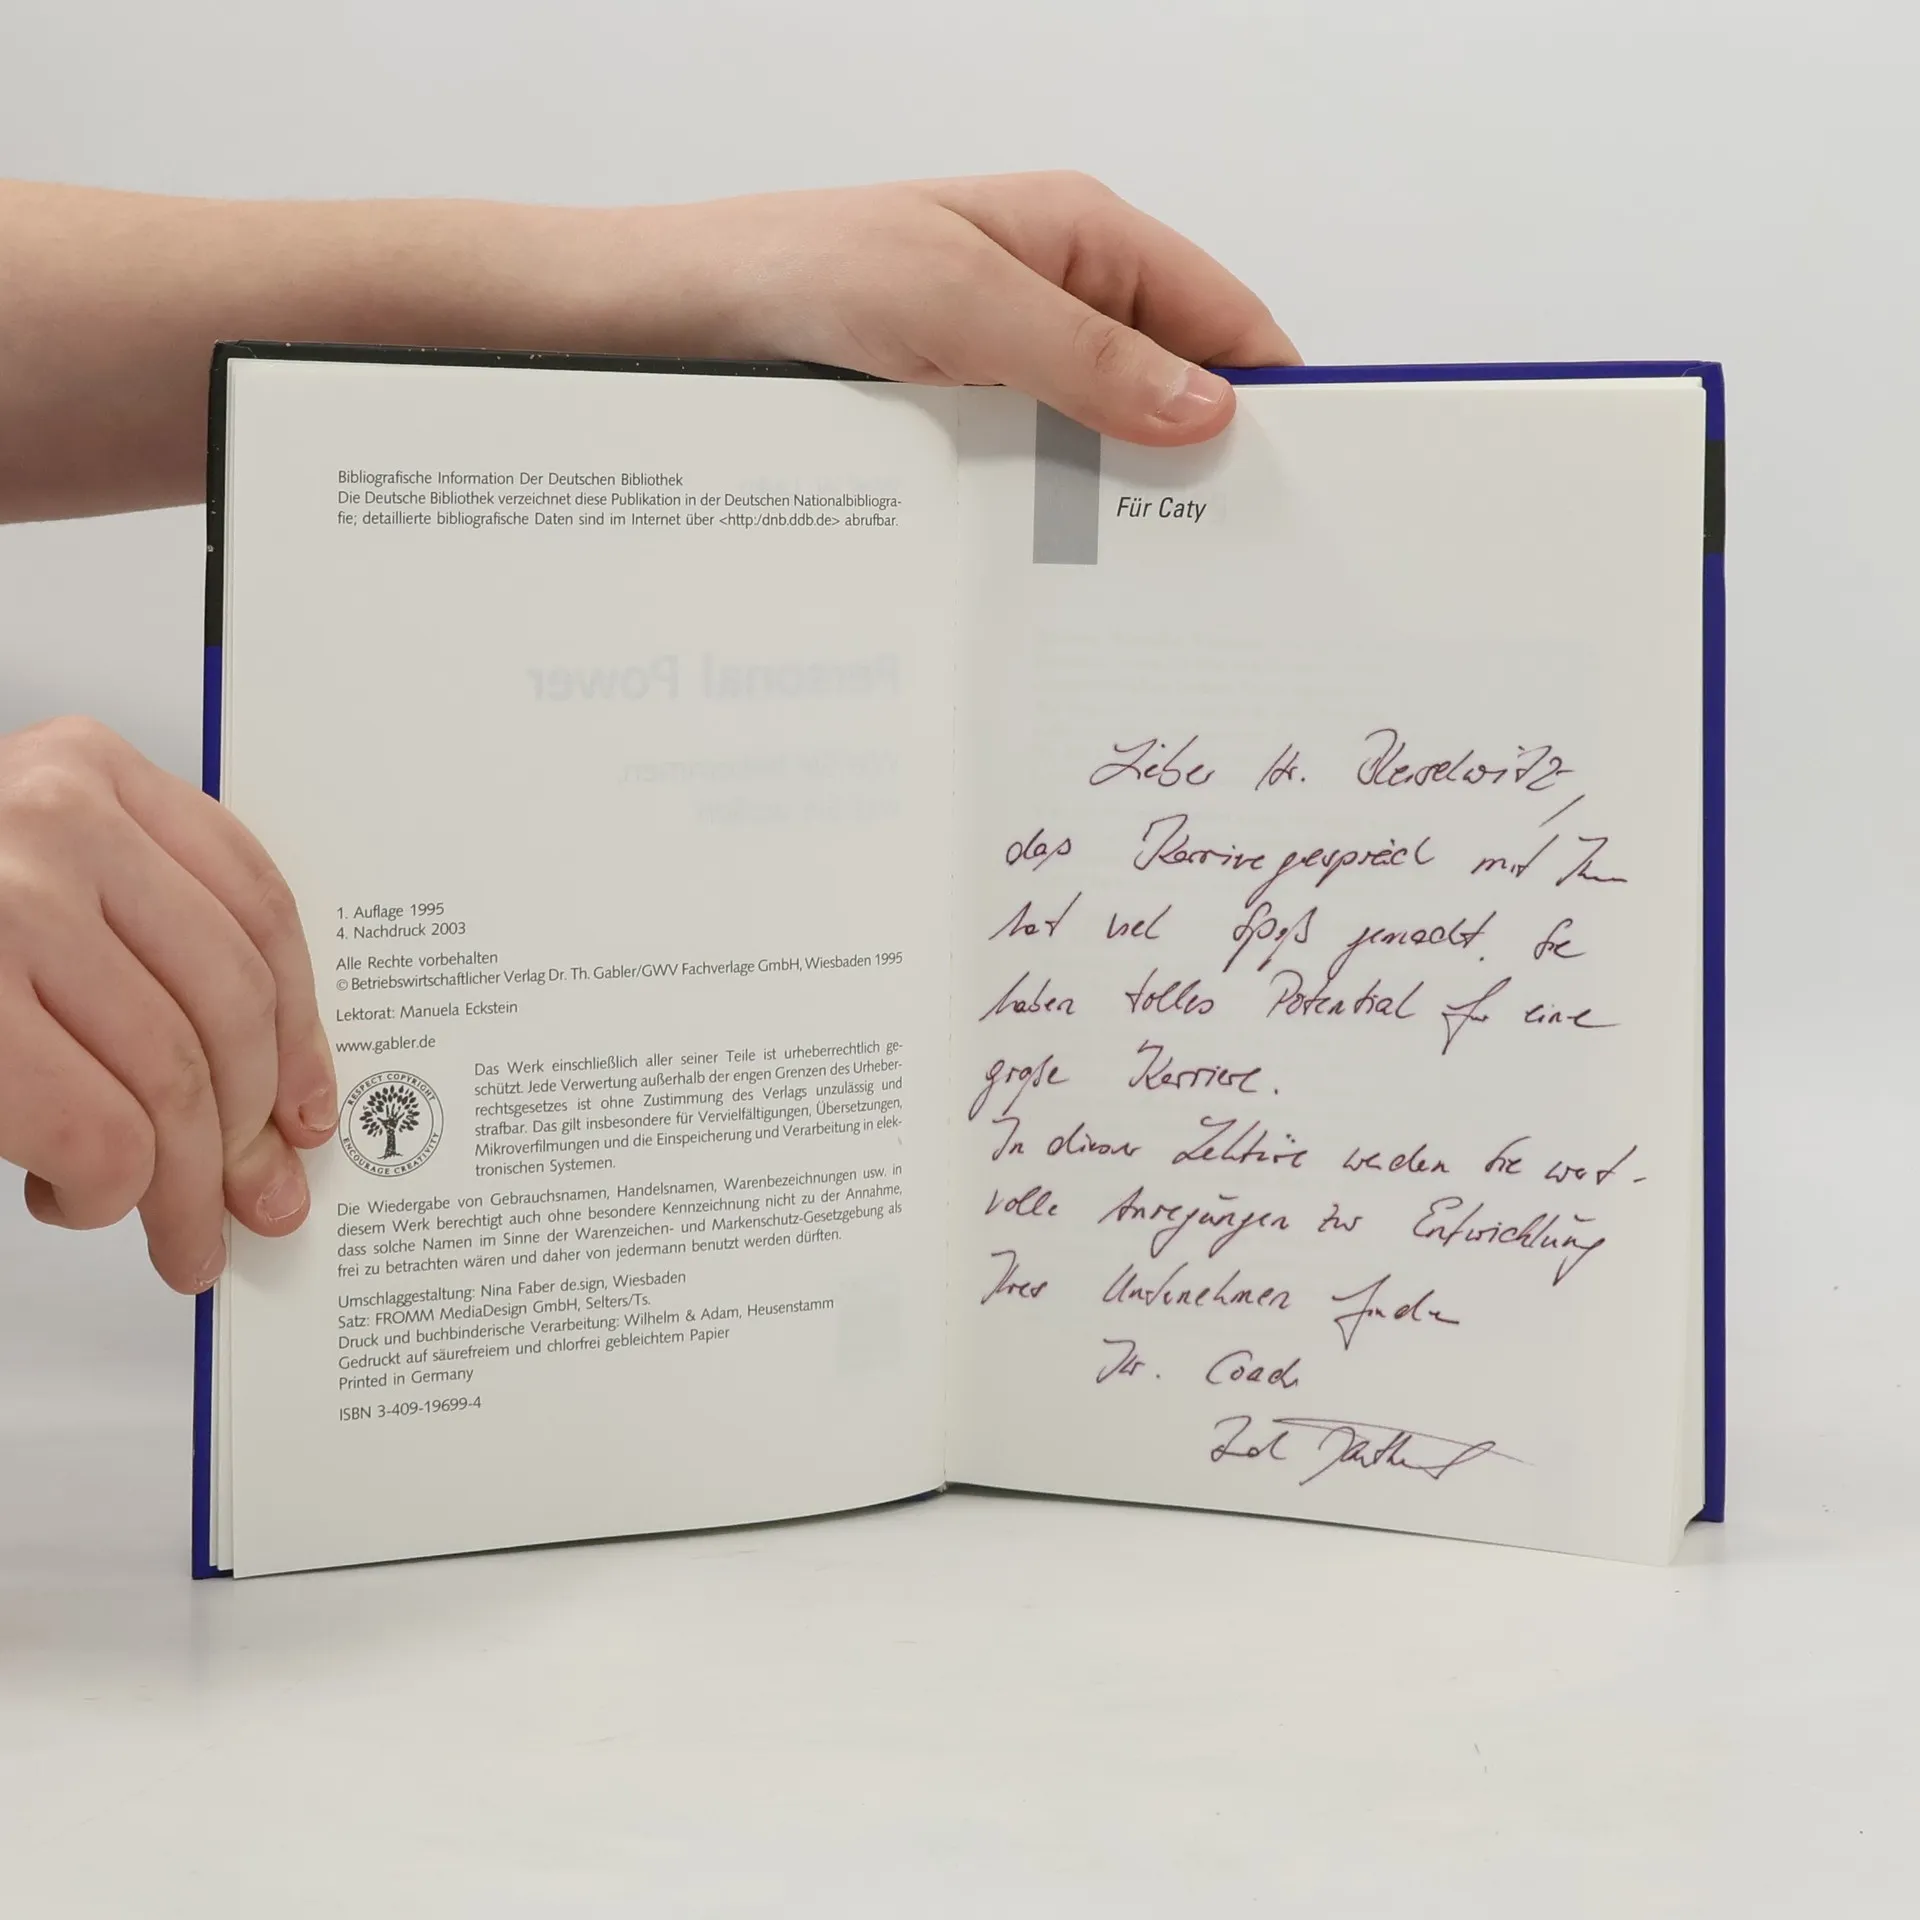 Bibliografische Information Der Deutschen Bibliothek
Die Deutsche Bibliothek verzeichnet diese Publikation in der Deutschen Nationalbibliogra-
fie; detaillierte bibliografische Daten sind im Internet über <http:/dnb.ddb.de> abrufbar.
1. Auflage 1995
4. Nachdruck 2003
Alle Rechte vorbehalten
© Betriebswirtschaftlicher Verlag Dr. Th. Gabler/GWV Fachverlage GmbH, Wiesbaden 1995
Lektorat: Manuela Eckstein
www.gabler.de
RESPECT COPYRIGHT
ENCOURAGE CREATIVITY
Das Werk einschließlich aller seiner Teile ist urheberrechtlich ge-
schützt. Jede Verwertung außerhalb der engen Grenzen des Urheber-
rechtsgesetzes ist ohne Zustimmung des Verlags unzulässig und
strafbar. Das gilt insbesondere für Vervielfältigungen, Übersetzungen,
Mikroverfilmungen und die Einspeicherung und Verarbeitung in elek-
tronischen Systemen.
Die Wiedergabe von Gebrauchsnamen, Handelsnamen, Warenbezeichnungen usw. in
diesem Werk berechtigt auch ohne besondere Kennzeichnung nicht zu der Annahme,
dass solche Namen im Sinne der Warenzeichen- und Markenschutz-Gesetzgebung als
frei zu betrachten wären und daher von jedermann benutzt werden dürften.
Umschlaggestaltung: Nina Faber de.sign, Wiesbaden
Satz: FROMM MediaDesign GmbH, Selters/Ts.
Druck und buchbinderische Verarbeitung: Wilhelm & Adam, Heusenstamm
Gedruckt auf säurefreiem und chlorfrei gebleichtem Papier
Printed in Germany
ISBN 3-409-19699-4
Für Caty
Lieber Hr.
das Karrieregespräch mit Ihnen
hat viel Spaß gemacht. Sie
haben tolles Potential für eine
große Karriere.
In dieser Lektüre werden Sie wert-
volle Anregungen zur Entwicklung
Ihres Unternehmen finden
Ihr. Coach